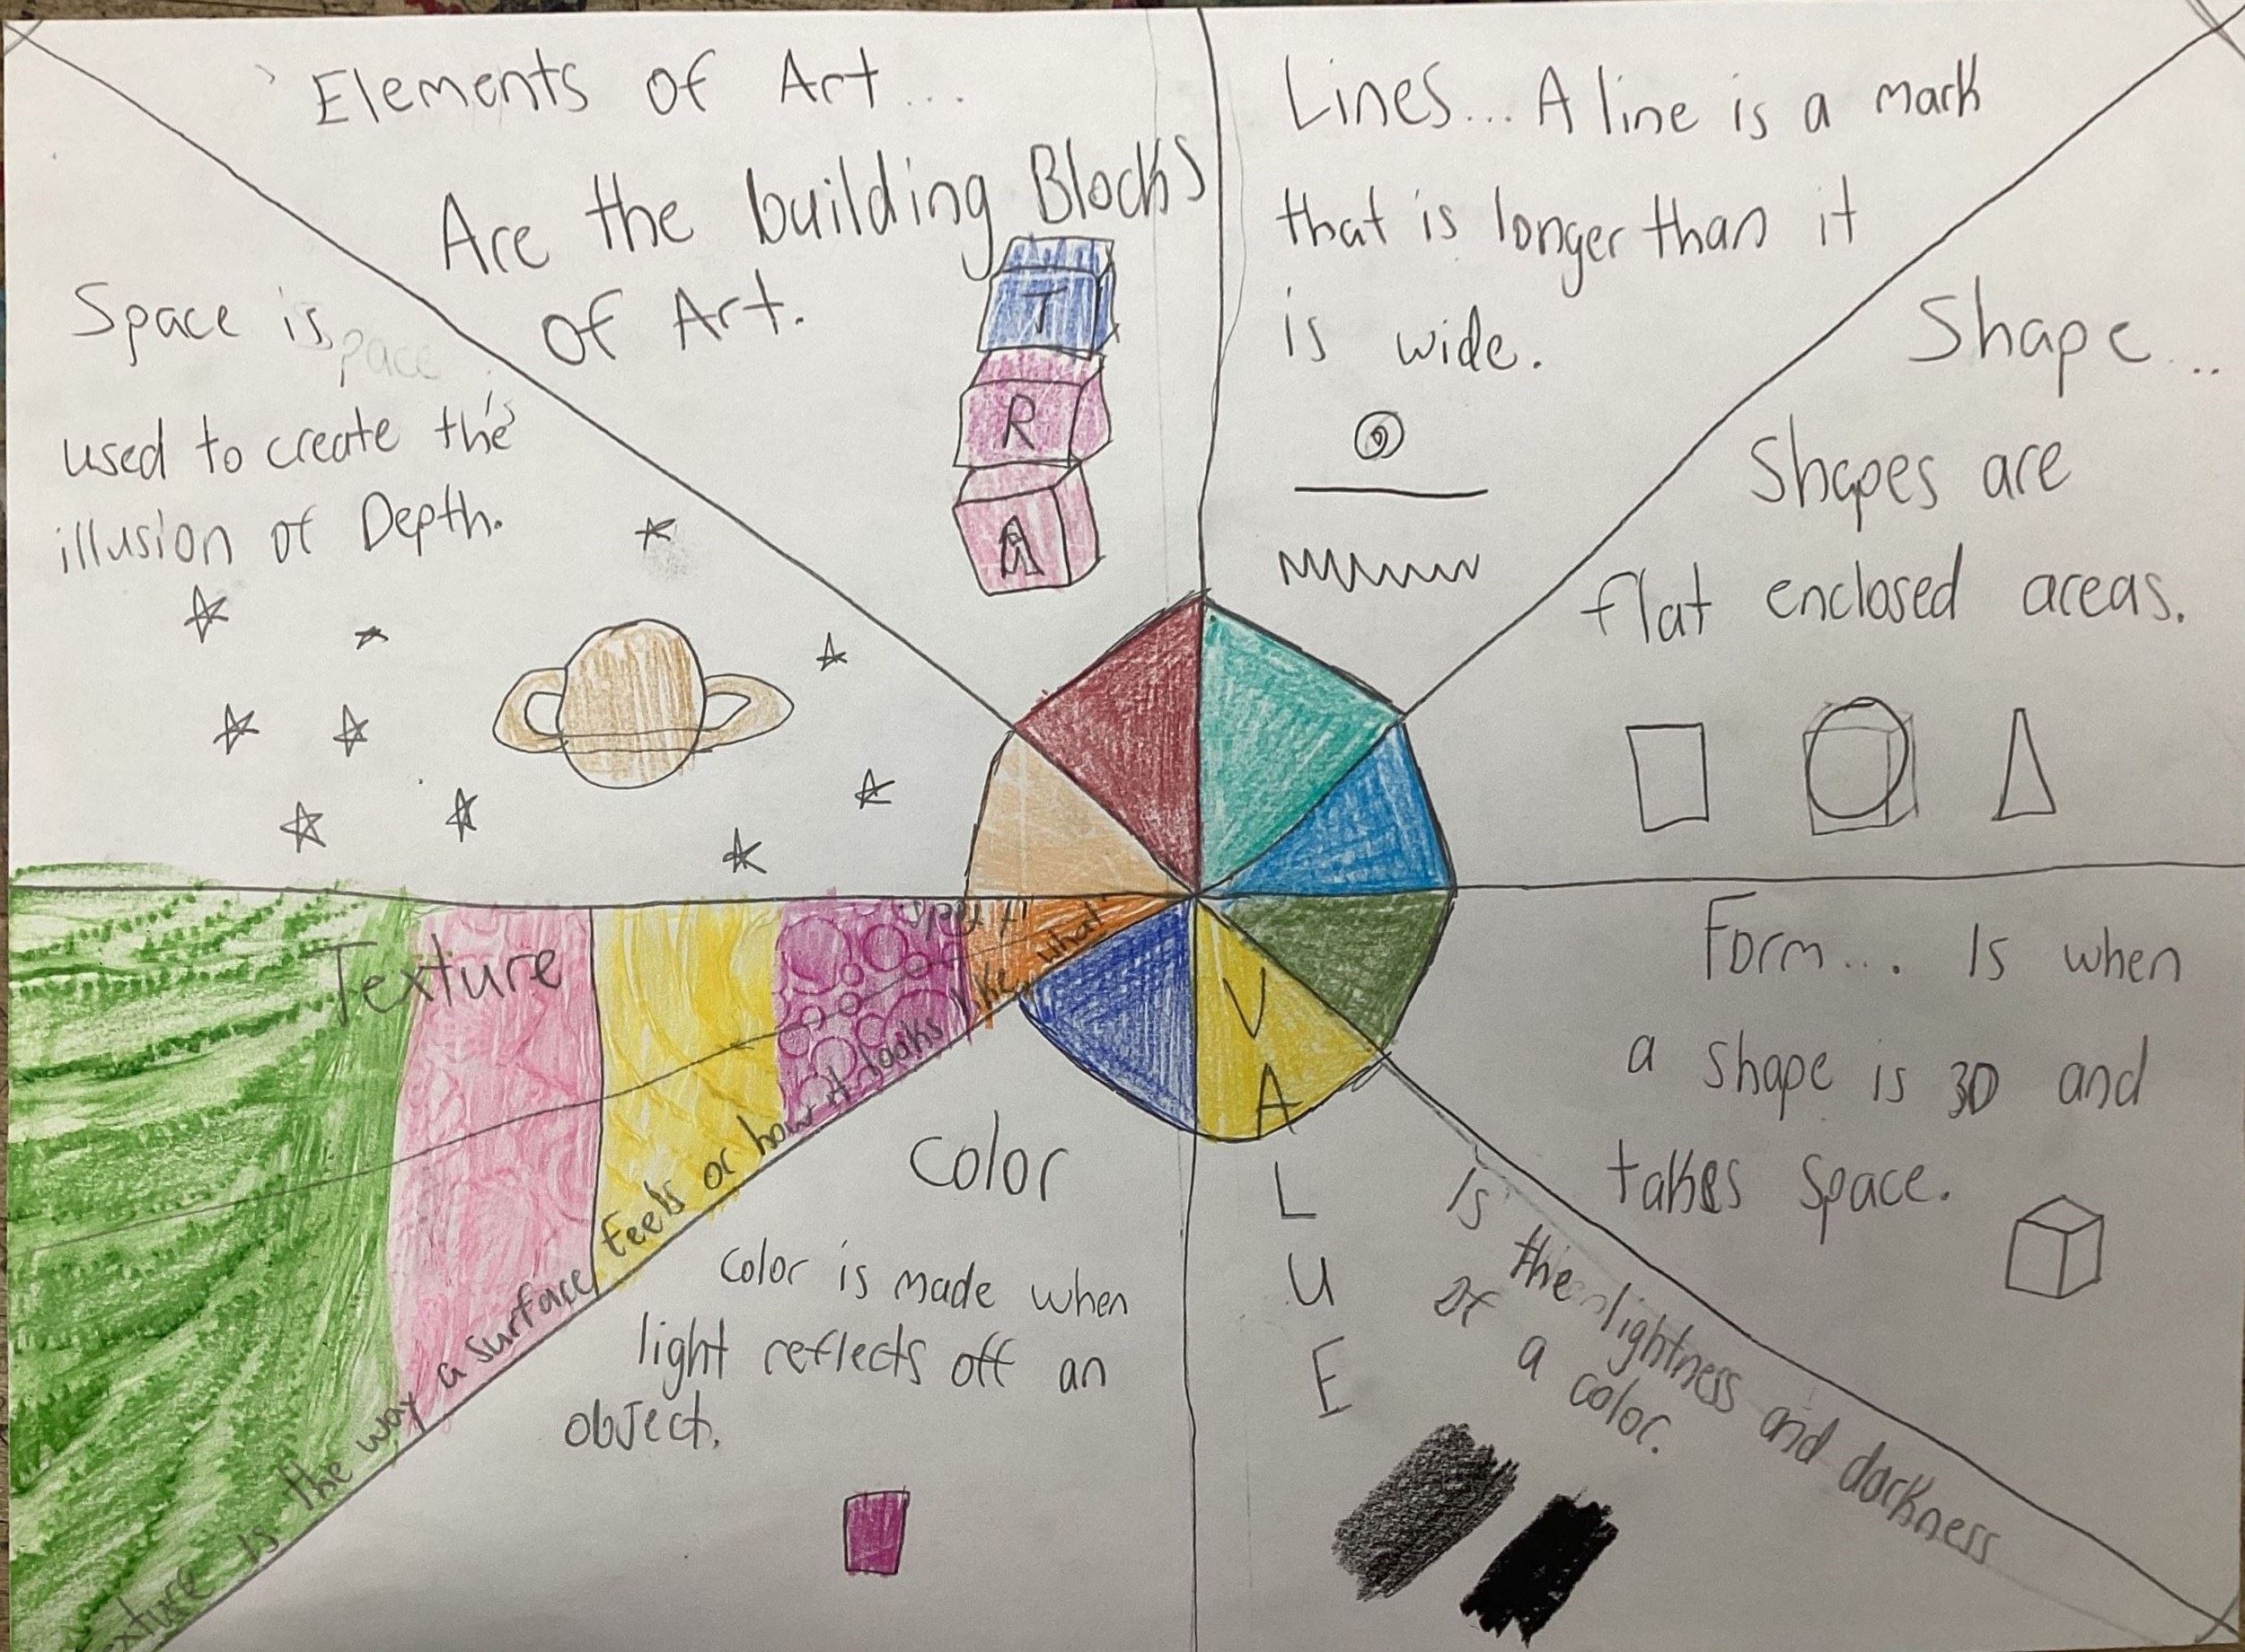 Elements of Art...
Are the building Blocks
of Art.
T
R
A
Lines... A line is a mark
that is longer than it
is wide.
Shape...
Shapes are
flat enclosed areas.
Form... Is when
a shape is 3D and
takes space.
VALUE
Is the lightness and darkness
of a color.
Color
Color is made when
light reflects off an
object.
Texture
Texture is the way a surface feels or how it looks like, what
it feels.
Space is
space is
used to create the
illusion of Depth.